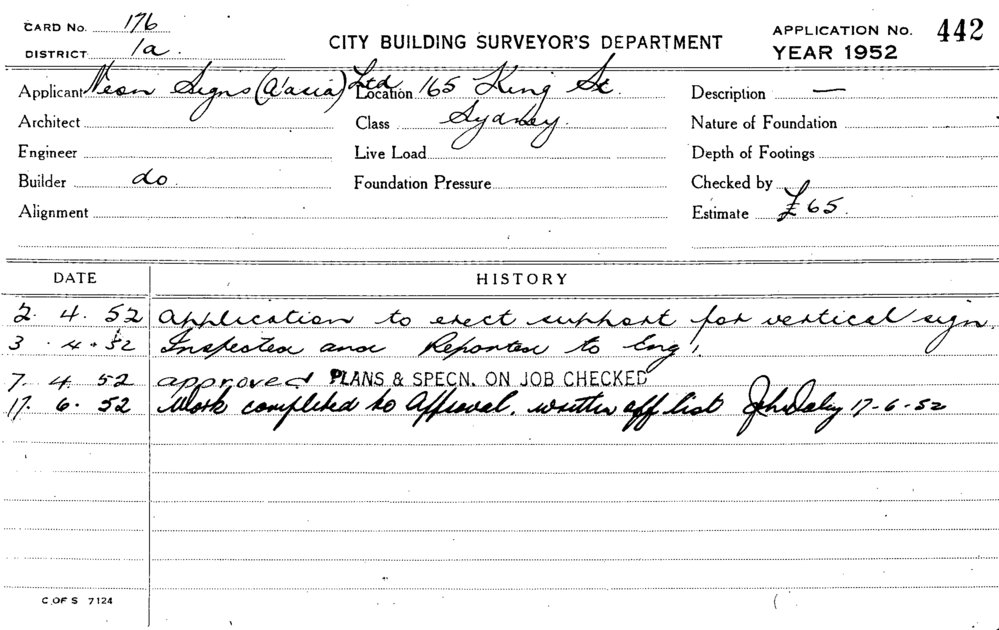 CARD No. 176
DISTRICT 1a.
CITY BUILDING SURVEYOR'S DEPARTMENT
APPLICATION No. 442
YEAR 1952
Applicant Neon Signs (A'asia) Ltd. Location 165 King St. Description —
Architect Class Sydney. Nature of Foundation
Engineer Live Load Depth of Footings
Builder do Foundation Pressure Checked by
Alignment Estimate £65.
DATE HISTORY
2. 4. 52 Application to erect support for vertical sign.
3. 4. 52 Inspected and Reported to Eng'.
7. 4. 52 approved PLANS & SPECN. ON JOB CHECKED
17. 6. 52 Work completed to Approval. written off list John Daley 17-6-52
C OF S 7124